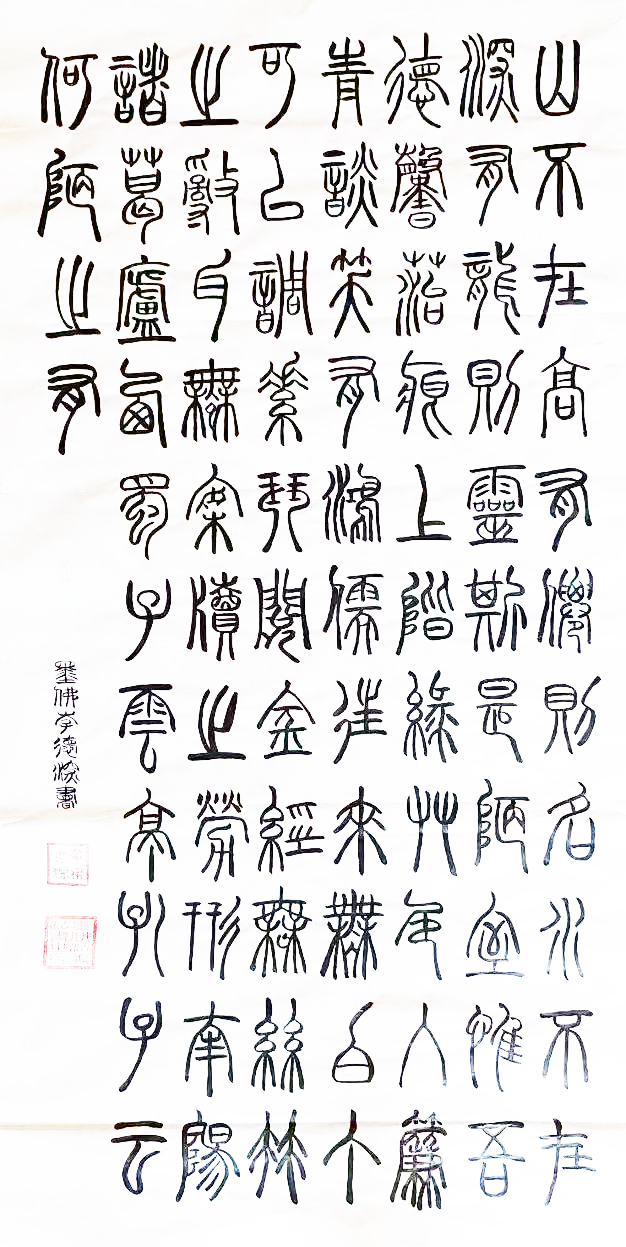 山不在高有僊則名水不在
深有龍則靈斯是陋室惟吾
德馨苔痕上階綠艸色入簾
青談笑有鴻儒往來無白丁
可以調素琴閱金經無絲竹
之亂耳無案牘之勞形南陽
諸葛廬西蜀子雲亭孔子云
何陋之有
佛李德書